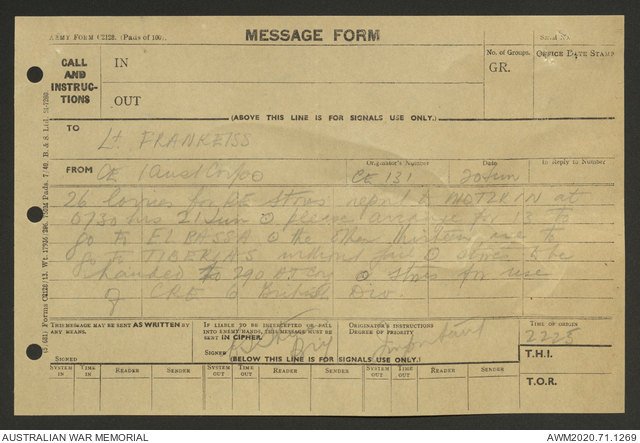 ARMY FORM C2128. (Pads of 100).
MESSAGE FORM
Serial No.
CALL AND INSTRUC-TIONS
IN
OUT
No. of Groups.
GR.
OFFICE DATE STAMP
(ABOVE THIS LINE IS FOR SIGNALS USE ONLY.)
TO
Lt. FRANKEISS
FROM
CE 1 Aust Corps
Originator's Number
CE 131
Date
20 Jun
In Reply to Number
26 lorries for stores report to MOTZKIN at
0730 hrs 21 Jun please arrange for 13 to
go to EL BASSA the other thirteen are to
go to TIBERIAS without fail stores to be
handed to 290 stores for use
of CRE 6 British Div.
THIS MESSAGE MAY BE SENT AS WRITTEN BY ANY MEANS.
SIGNED
IF LIABLE TO BE INTERCEPTED OR FALL INTO ENEMY HANDS, THIS MESSAGE MUST BE SENT IN CIPHER.
SIGNED
ORIGINATOR'S INSTRUCTIONS
DEGREE OF PRIORITY
Important
TIME OF ORIGIN
2225
T.H.I.
T.O.R.
(BELOW THIS LINE IS FOR SIGNALS USE ONLY.)
SYSTEM IN TIME IN READER SENDER SYSTEM OUT TIME OUT READER SENDER SYSTEM OUT TIME OUT READER SENDER
AUSTRALIAN WAR MEMORIAL
AWM2020.71.1269